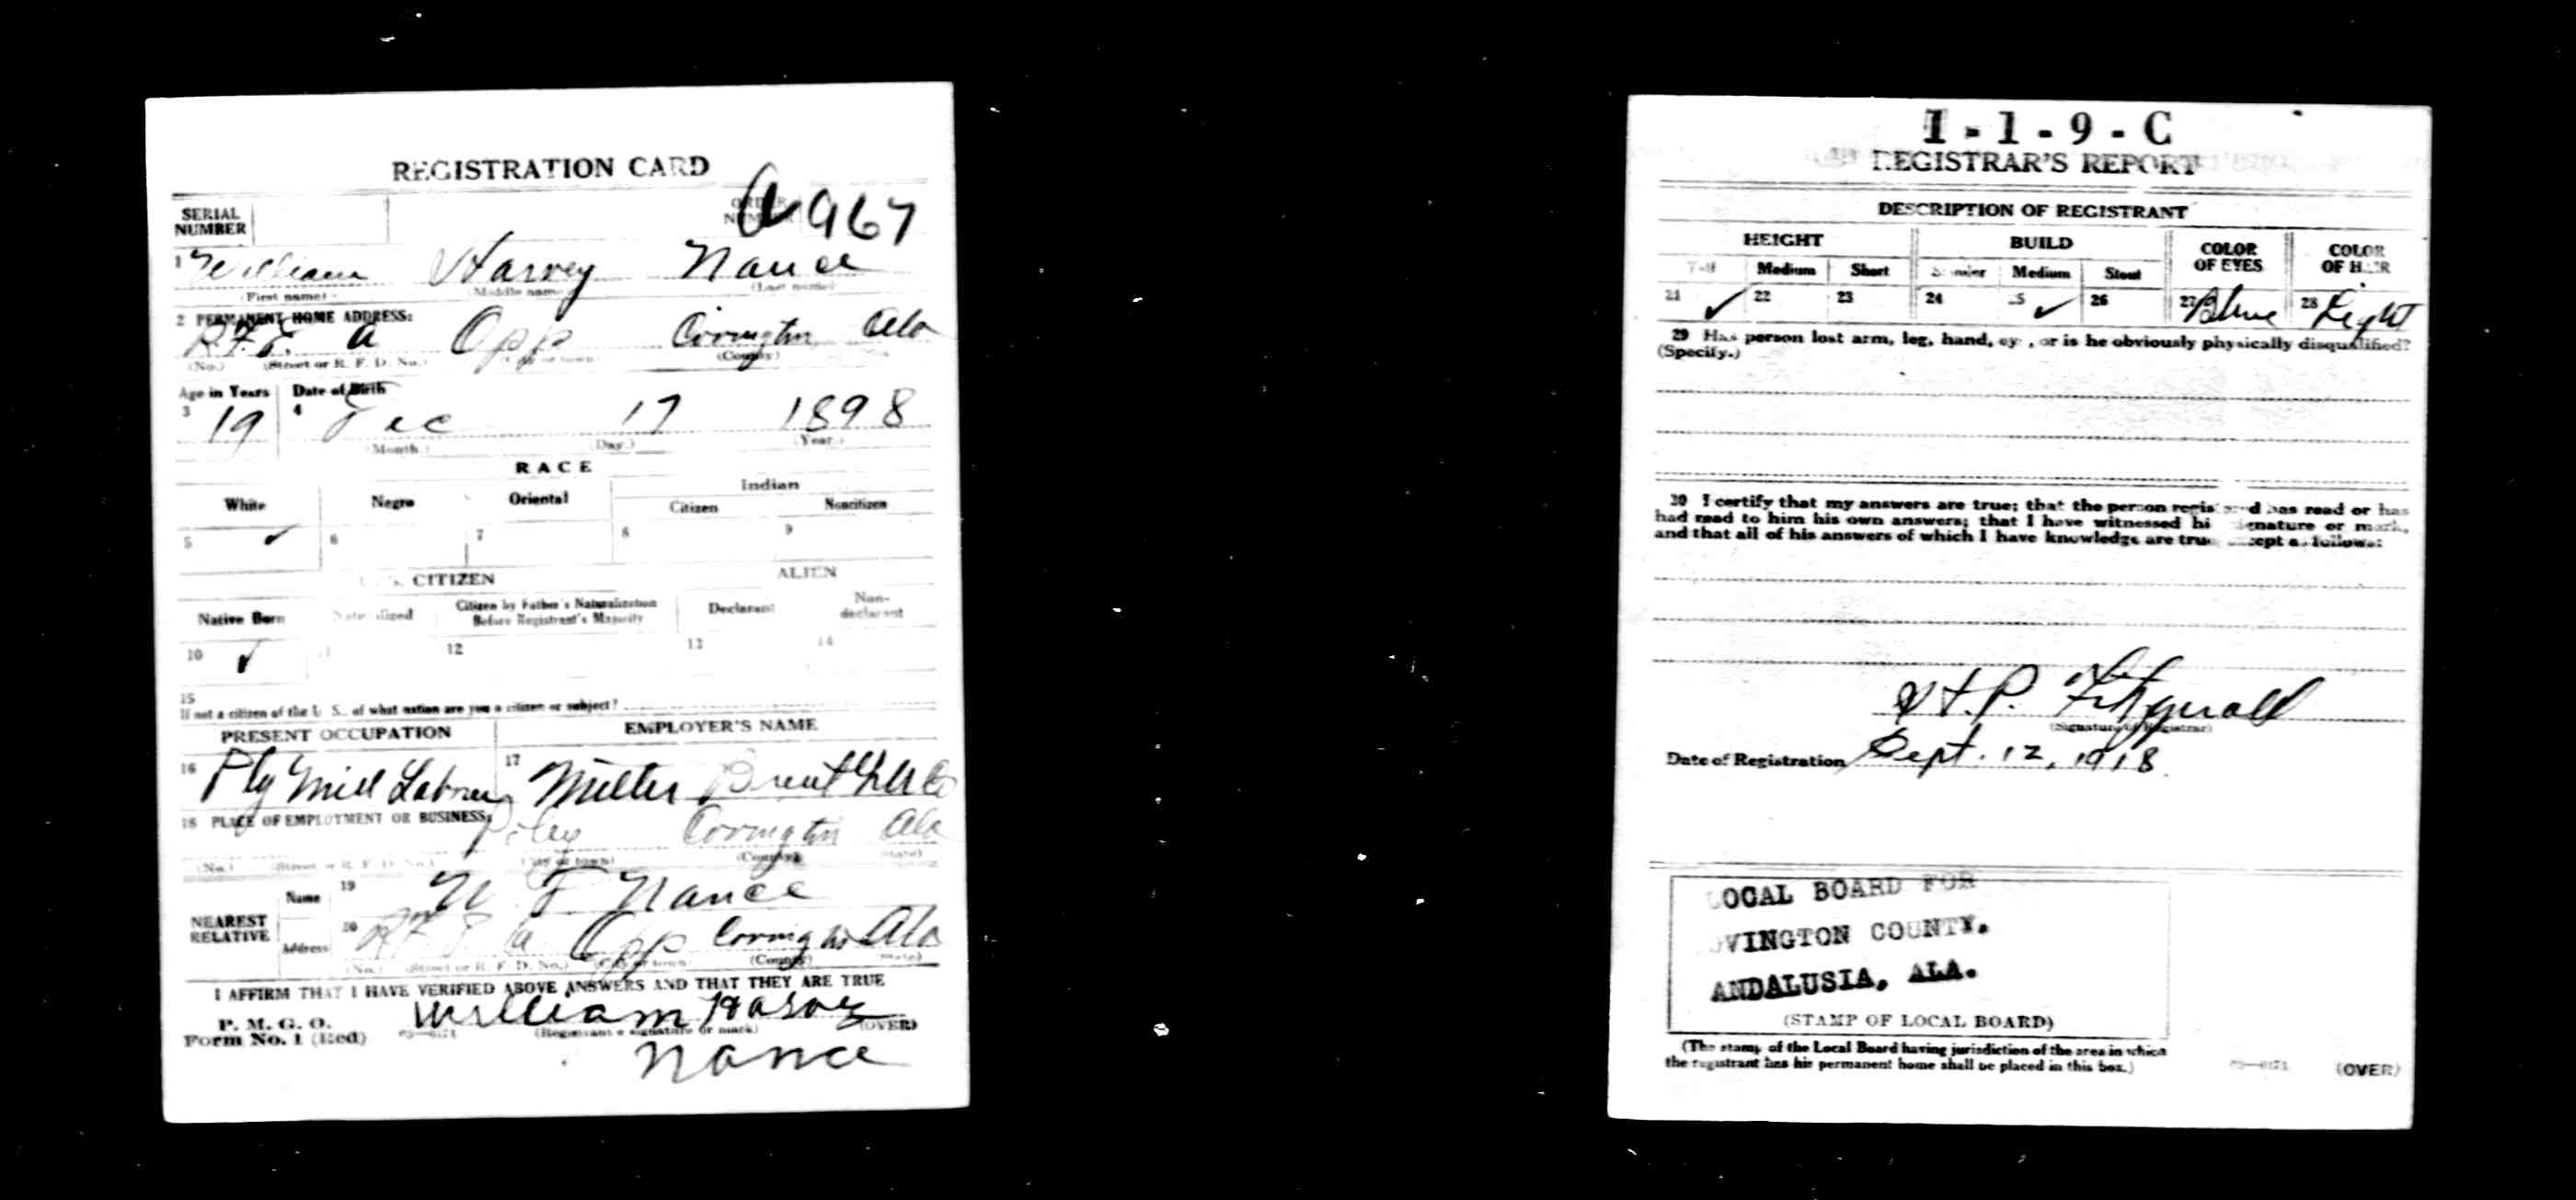 REGISTRATION CARD
SERIAL NUMBER
ORDER NUMBER A967
1 William Harvey Nance
(First name) (Middle name) (Last name)
2 PERMANENT HOME ADDRESS:
R.F.D. a Opp Covington Ala
(No.) (Street or R. F. D. No.) (City or town) (County)
Age in Years Date of Birth
3 19 4 Dec 17 1898
(Month.) (Day.) (Year.)
RACE
White Negro Oriental Indian
Citizen Noncitizen
5 ✓ 6 7 8 9
U. S. CITIZEN ALIEN
Native Born Naturalized Citizen by Father's Naturalization Before Registrant's Majority Declarant Non-declarant
10 ✓ 11 12 13 14
15
If not a citizen of the U. S., of what nation are you a citizen or subject?
PRESENT OCCUPATION EMPLOYER'S NAME
16 Mill Laborer 17 Miller Brent Co
18 PLACE OF EMPLOYMENT OR BUSINESS:
Covington Ala
(No.) (Street or R. F. D. No.) (City or town) (County) (State)
NEAREST RELATIVE
Name 19 Nance
Address 20 a Opp Covington Ala
(No.) (Street or R. F. D. No.) (City or town) (County) (State)
I AFFIRM THAT I HAVE VERIFIED ABOVE ANSWERS AND THAT THEY ARE TRUE
P. M. G. O.
Form No. 1 (Red)
William Harvey
(Registrant's signature or mark) (OVER)
Nance
1-1-9-C
REGISTRAR'S REPORT
DESCRIPTION OF REGISTRANT
HEIGHT BUILD COLOR OF EYES COLOR OF HAIR
Tall Medium Short Slender Medium Stout
21 ✓ 22 23 24 25 ✓ 26 27 Blue 28 Light
29 Has person lost arm, leg, hand, eye, or is he obviously physically disqualified?
(Specify.)
30 I certify that my answers are true; that the person registered has read or has
had read to him his own answers; that I have witnessed his signature or mark,
and that all of his answers of which I have knowledge are true, except as follows:
P. Fitzgerald
(Signature of Registrar)
Date of Registration Sept. 12, 1918
LOCAL BOARD FOR
OVINGTON COUNTY.
ANDALUSIA, ALA.
(STAMP OF LOCAL BOARD)
(The stamp of the Local Board having jurisdiction of the area in which
the registrant has his permanent home shall be placed in this box.)
(OVER)